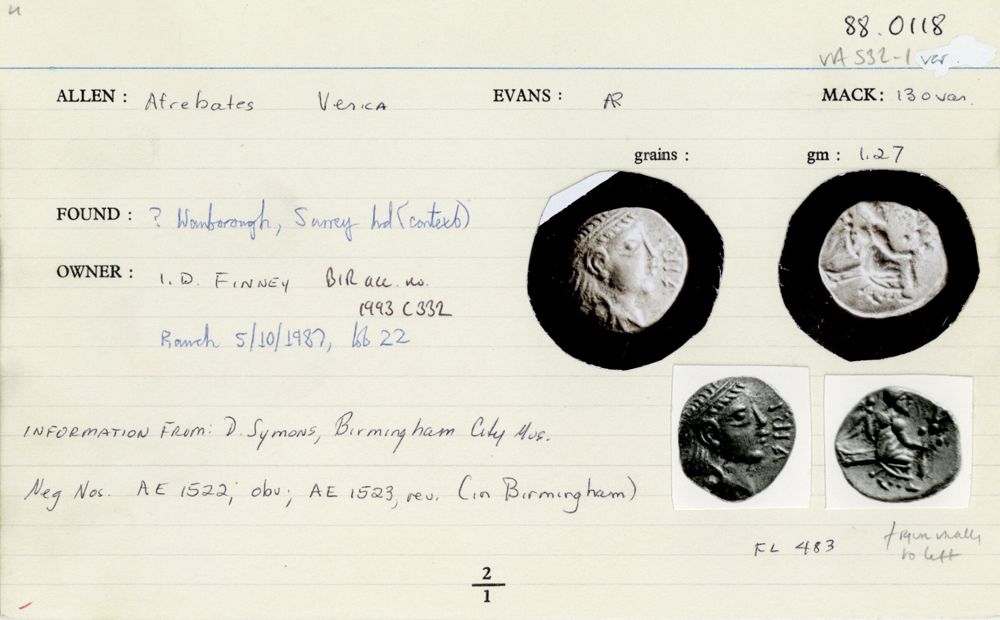 88.0118
VA 532-1 var.
ALLEN : Atrebates Verica EVANS : AR MACK: 130 var.
grains : gm : 1.27
FOUND : ? Wanborough, Surrey hd (context)
OWNER : I. D. FINNEY BIR acc. no.
1993 C 332
5/10/1987, lot 22
INFORMATION FROM: D. Symons, Birmingham City Mus.
Neg Nos. AE 1522; obv; AE 1523, rev. (in Birmingham)
FL 483
to left
2
1